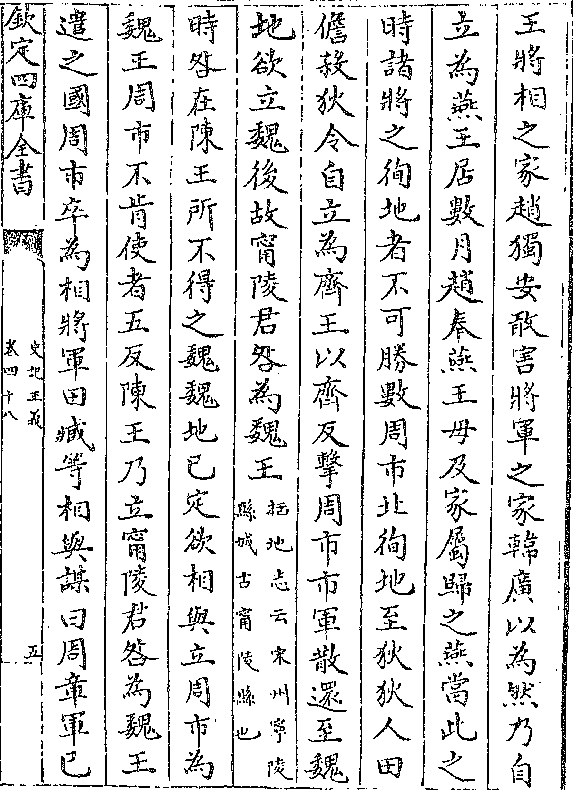 王將相之家趙獨安敢害將軍之家韓廣以為然乃自
立為燕王居數月趙奉燕王母及家屬歸之燕當此之
時諸將之徇地者不可勝數周市北徇地至狄狄人田
儋殺狄令自立為齊王以齊反擊周市市軍散還至魏
地欲立魏後故甯陵君咎為魏王括地志云宋州寧陵縣城古甯陵縣也
時咎在陳王所不得之魏魏地已定欲相與立周市為
魏王周市不肯使者五反陳王乃立甯陵君咎為魏王
遣之國周市卒為相將軍田臧等相與謀曰周章軍已
欽定四庫全書
史記正義
卷四十八
五